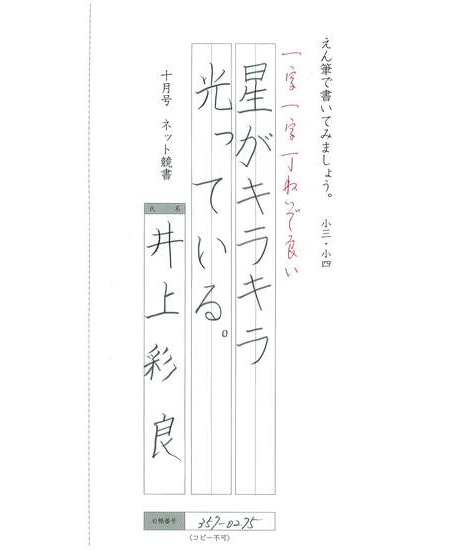 えん筆で書いてみましょう。 小三・小四
一字一字丁ねいで良い
星がキラキラ
光っている。
十月号 ネット競書
氏名
井上彩良
会員番号 357-0275
(コピー不可)